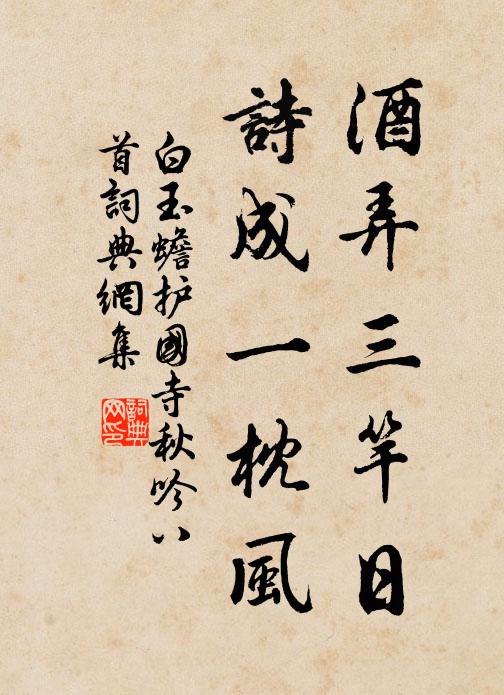 酒弄三竿日
詩成一枕風
白玉蟾护國寺秋吟八
首詞典網集
詞典
网印